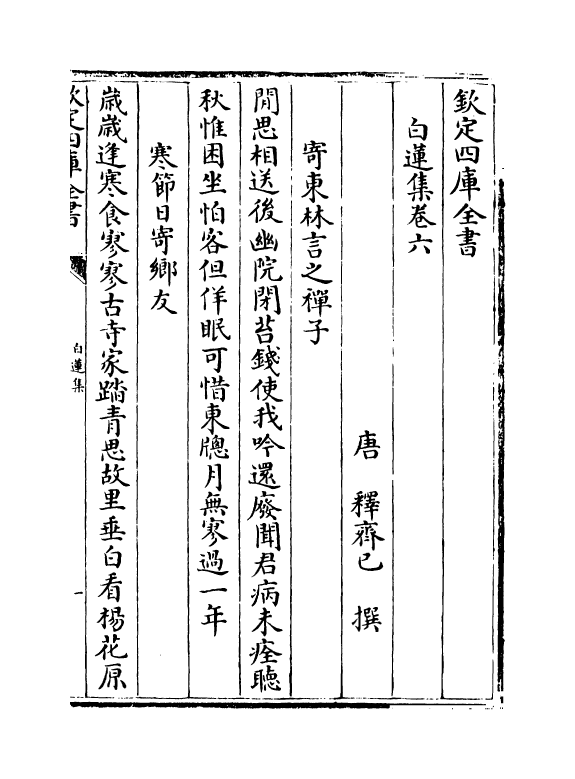 欽定四庫全書
白蓮集卷六
唐　釋齊己　撰
寄東林言之禪子
閒思相送後幽院閉苔錢使我吟還廢聞君病未痊聽
秋惟困坐怕客但佯眠可惜東牕月無寥過一年
寒節日寄鄉友
歳歳逢寒食寥寥古寺家踏青思故里垂白看楊花原
欽定四庫全書
白蓮集
一